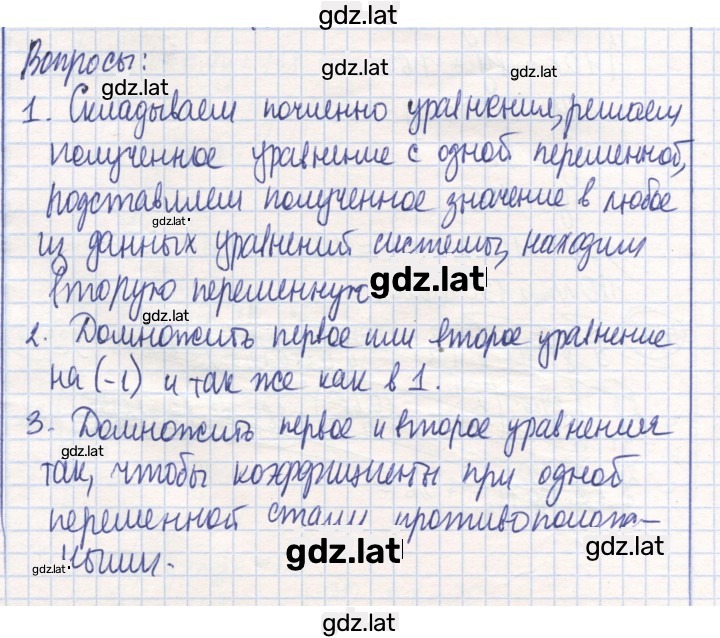 gdz.lat
Вопросы:
gdz.lat
gdz.lat
gdz.lat
1. Складываем почленно уравнения, решаем
полученное уравнение с одной переменной,
подставляем полученное значение в любое
gdz.lat
из данных уравнений системы, находим
вторую переменную
gdz.lat
gdz.lat
2. Домножить первое или второе уравнение
на (-1) и так же как в 1.
3. Домножить первое и второе уравнения
gdz.lat
так, чтобы коэффициенты при одной
переменной стали противополож-
ными.
gdz.lat
gdz.lat
gdz.lat
gdz.lat